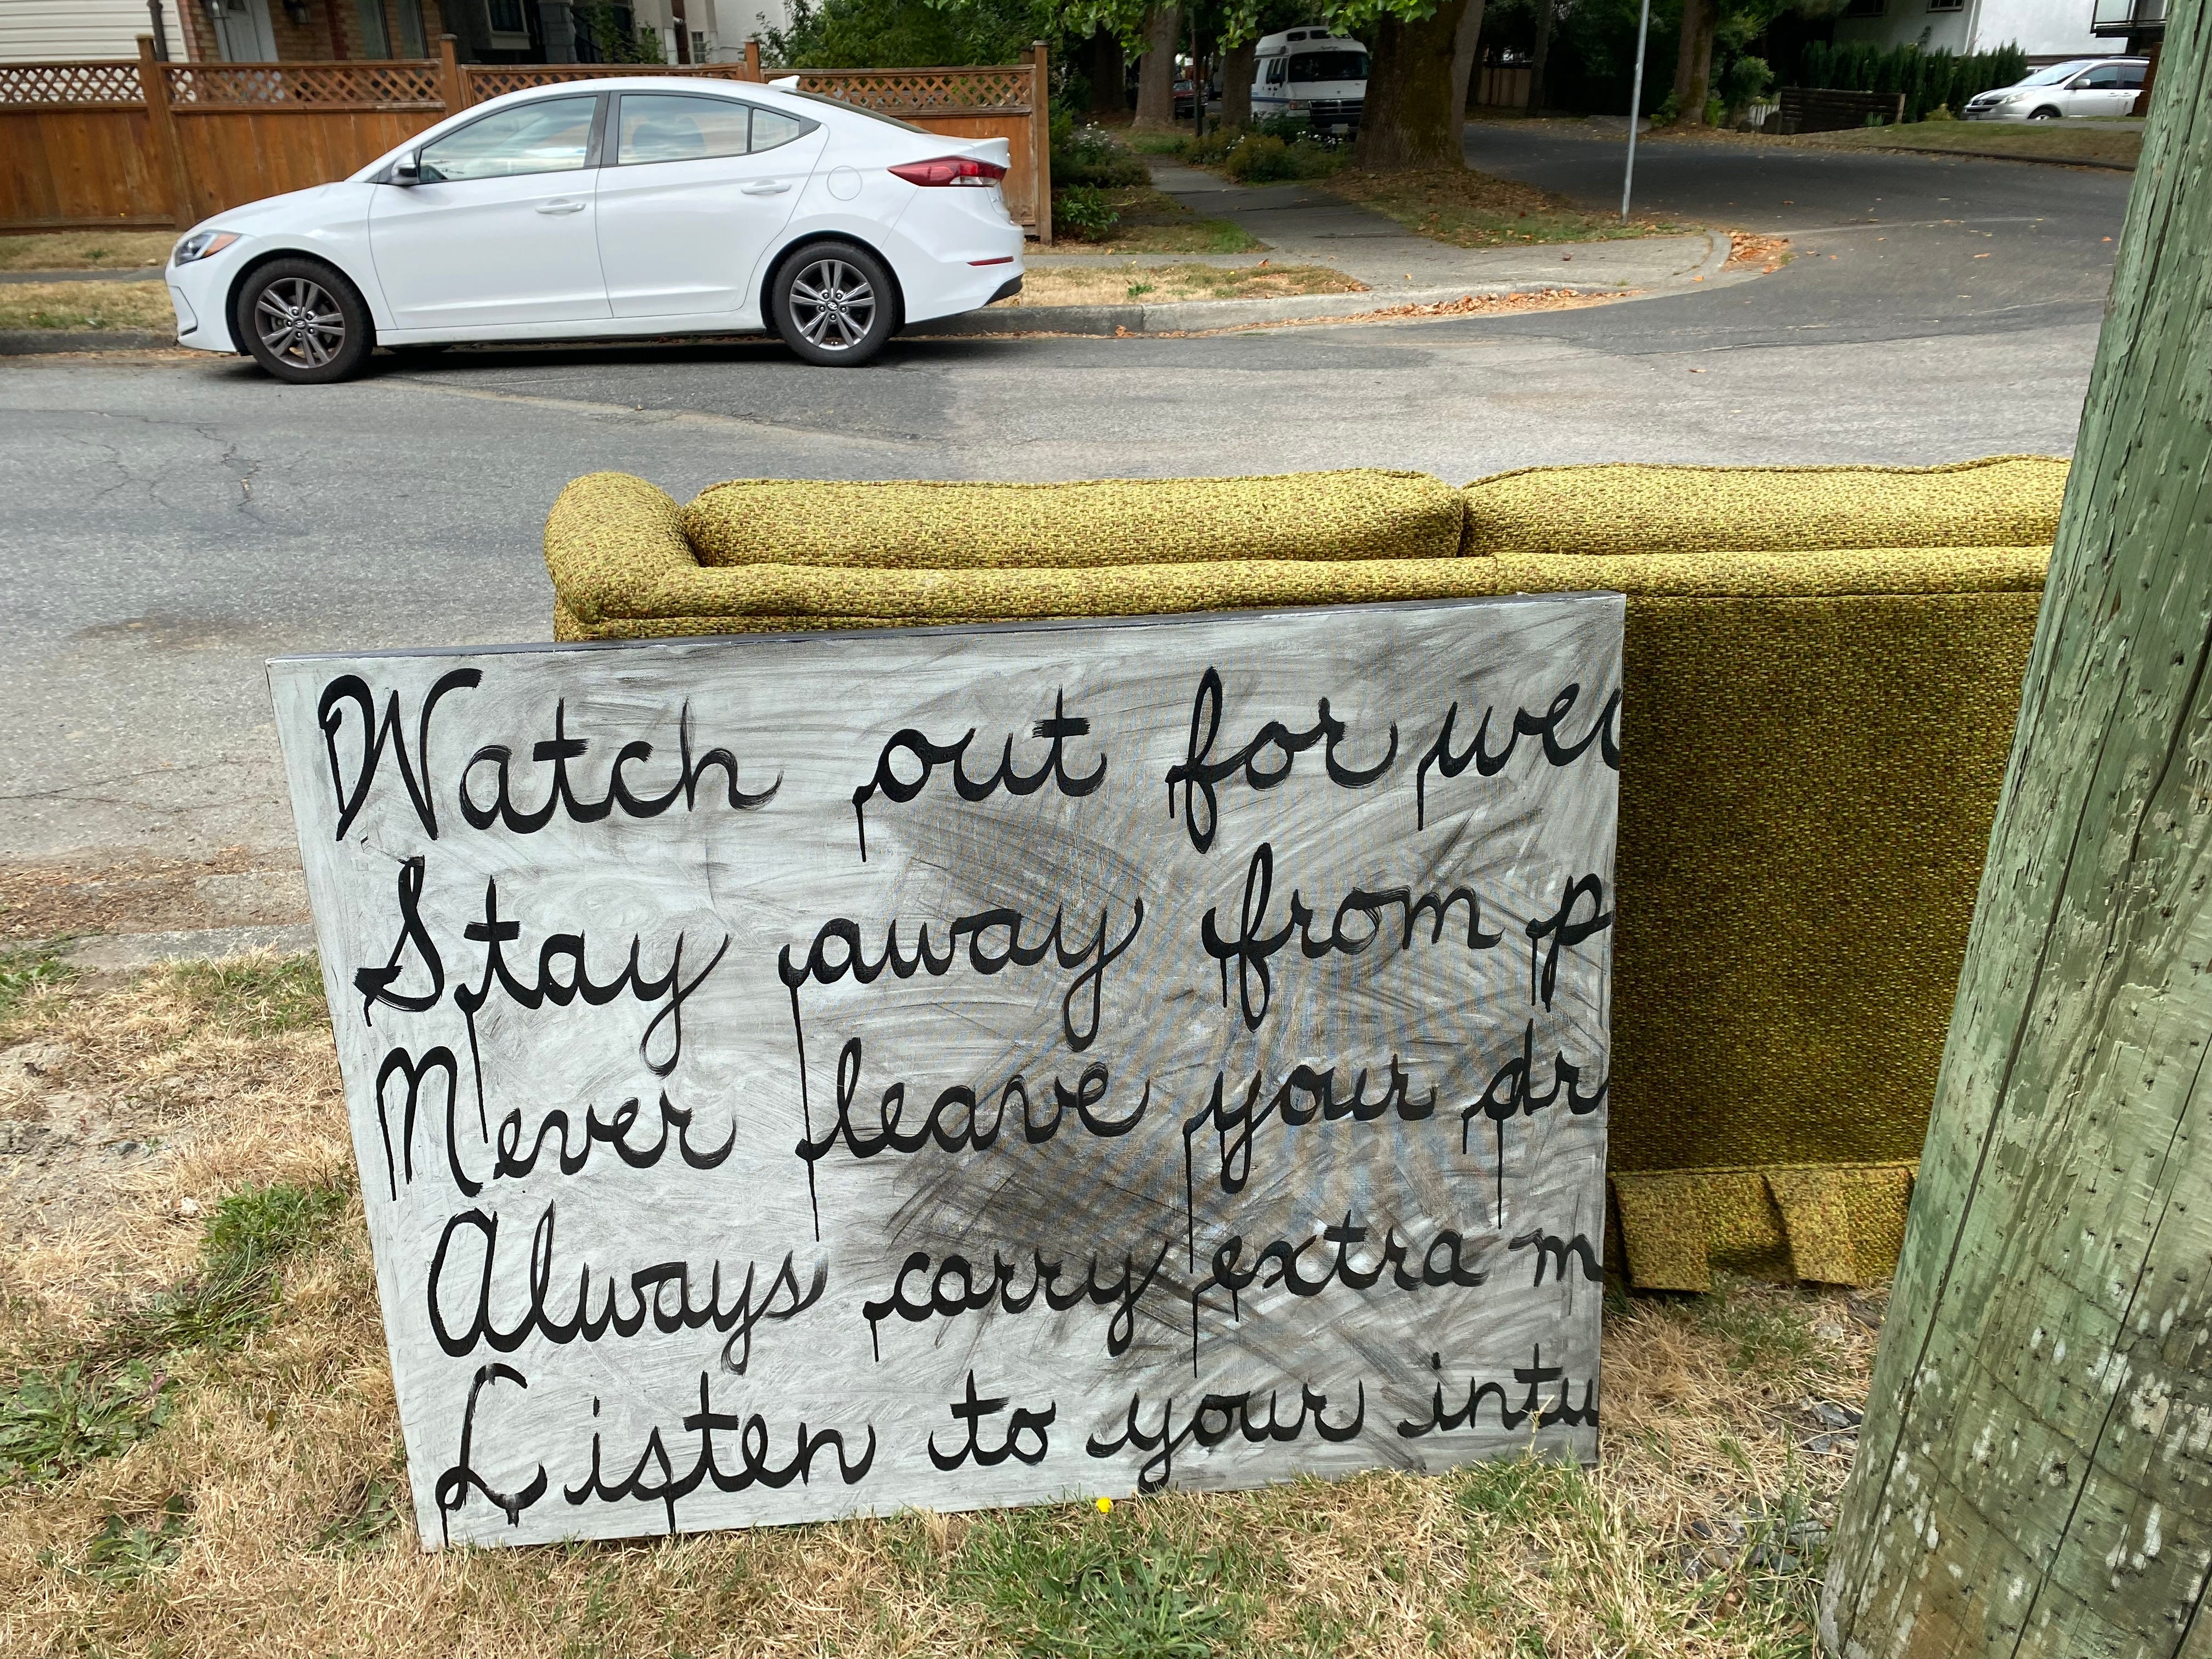 Watch out for wea
Stay away from p
Never leave your dr
Always carry extra m
Listen to your intu